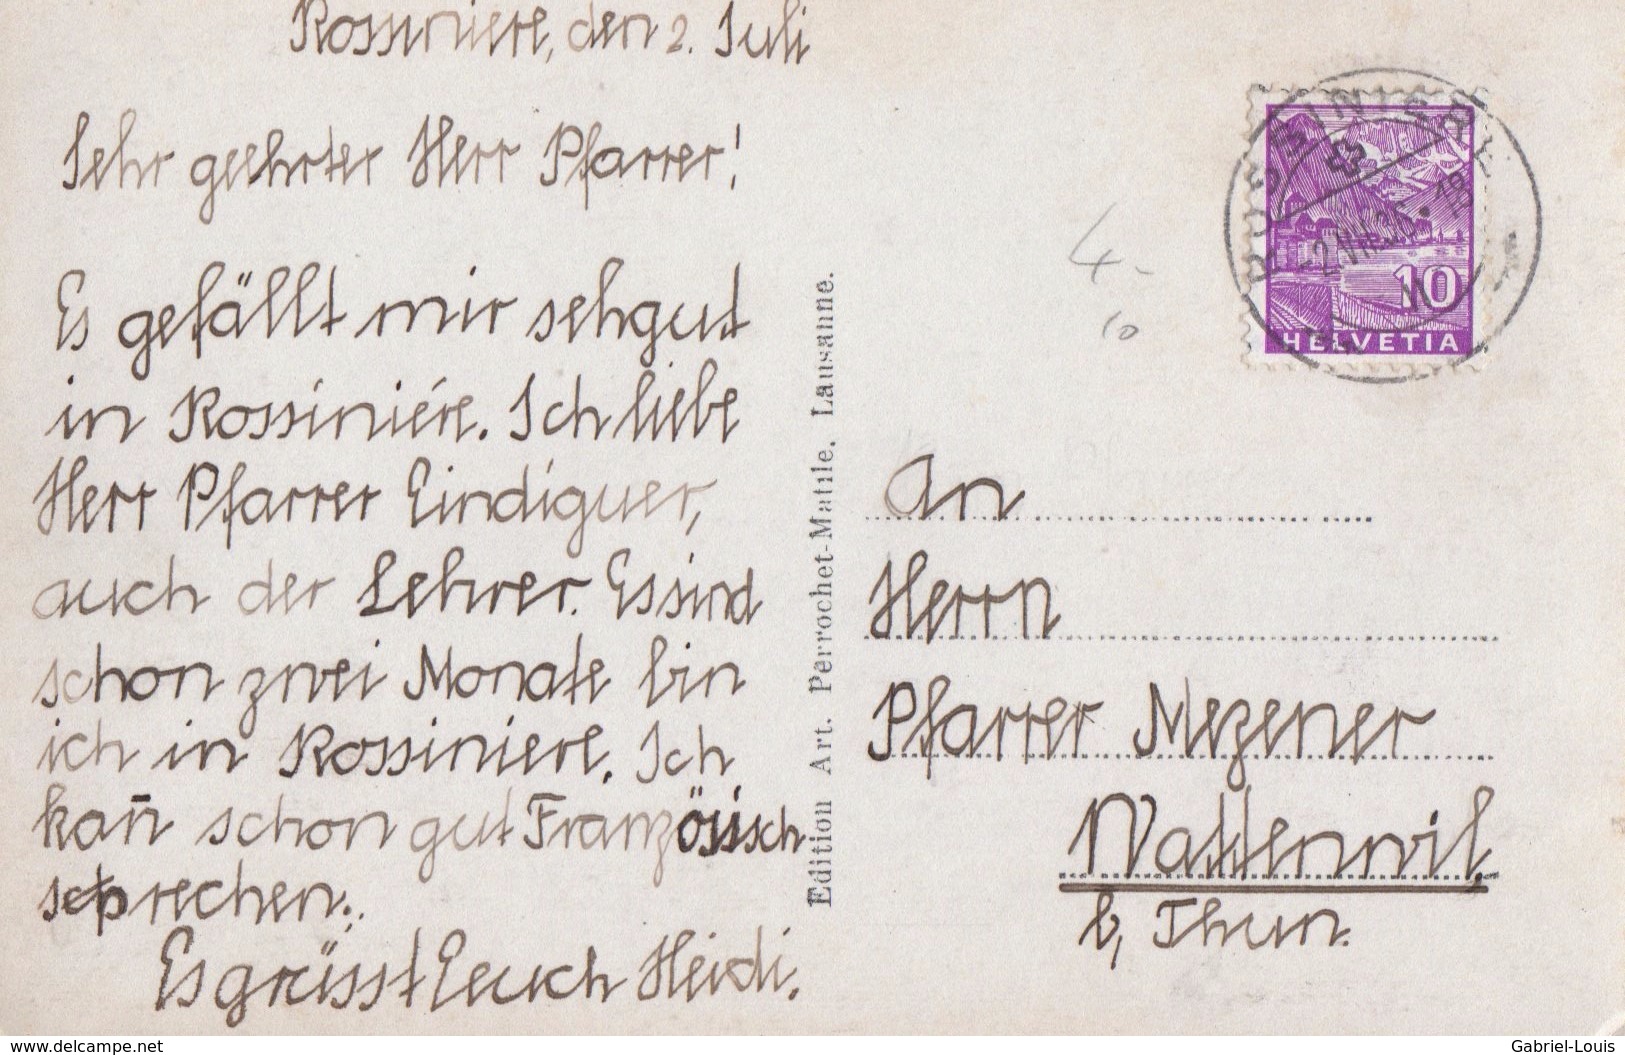 Rossiniere, den 2. Juli
Sehr geehrter Herr Pfarrer!
Es gefällt mir sehgut
in Rossiniére. Ich liebe
Herr Pfarrer Eindiguer,
auch der Lehrer. Es sind
schon zwei Monate bin
ich in Rossiniere. Ich
kan̄ schon gut Französisch
sprechen.
Es grüsst Eeuch Heidi.
Edition Art. Perrochet-Matile, Lausanne.
4.-
10
ROSSINIERE
-2.VII.36
10
HELVETIA
An
Herrn
Pfarrer Mezener
Wattenwil
b, Thun.
www.delcampe.net
Gabriel-Louis